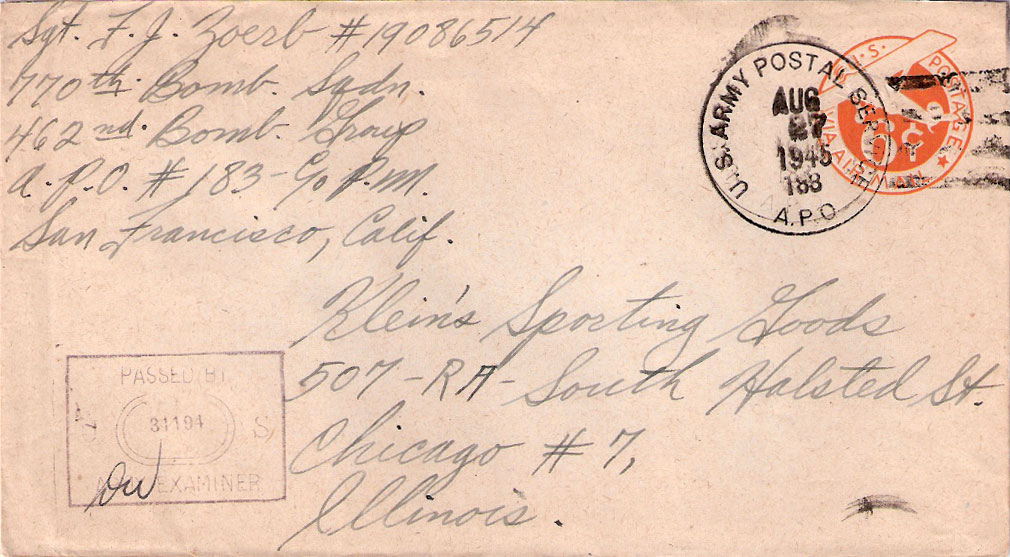 Sgt. F. J. Zoerb #19086514
770th Bomb. Sqdn.
462nd. Bomb. Group
A.P.O. #183 - % P.M.
San Francisco, Calif.
U.S. ARMY POSTAL SERVICE
AUG
27
1945
183
A.P.O.
U.S. POSTAGE
6¢
VIA AIR MAIL
Klein's Sporting Goods
507 - RA - South Halsted St.
Chicago #7,
Illinois.
PASSED BY
U S
31194
ARMY EXAMINER